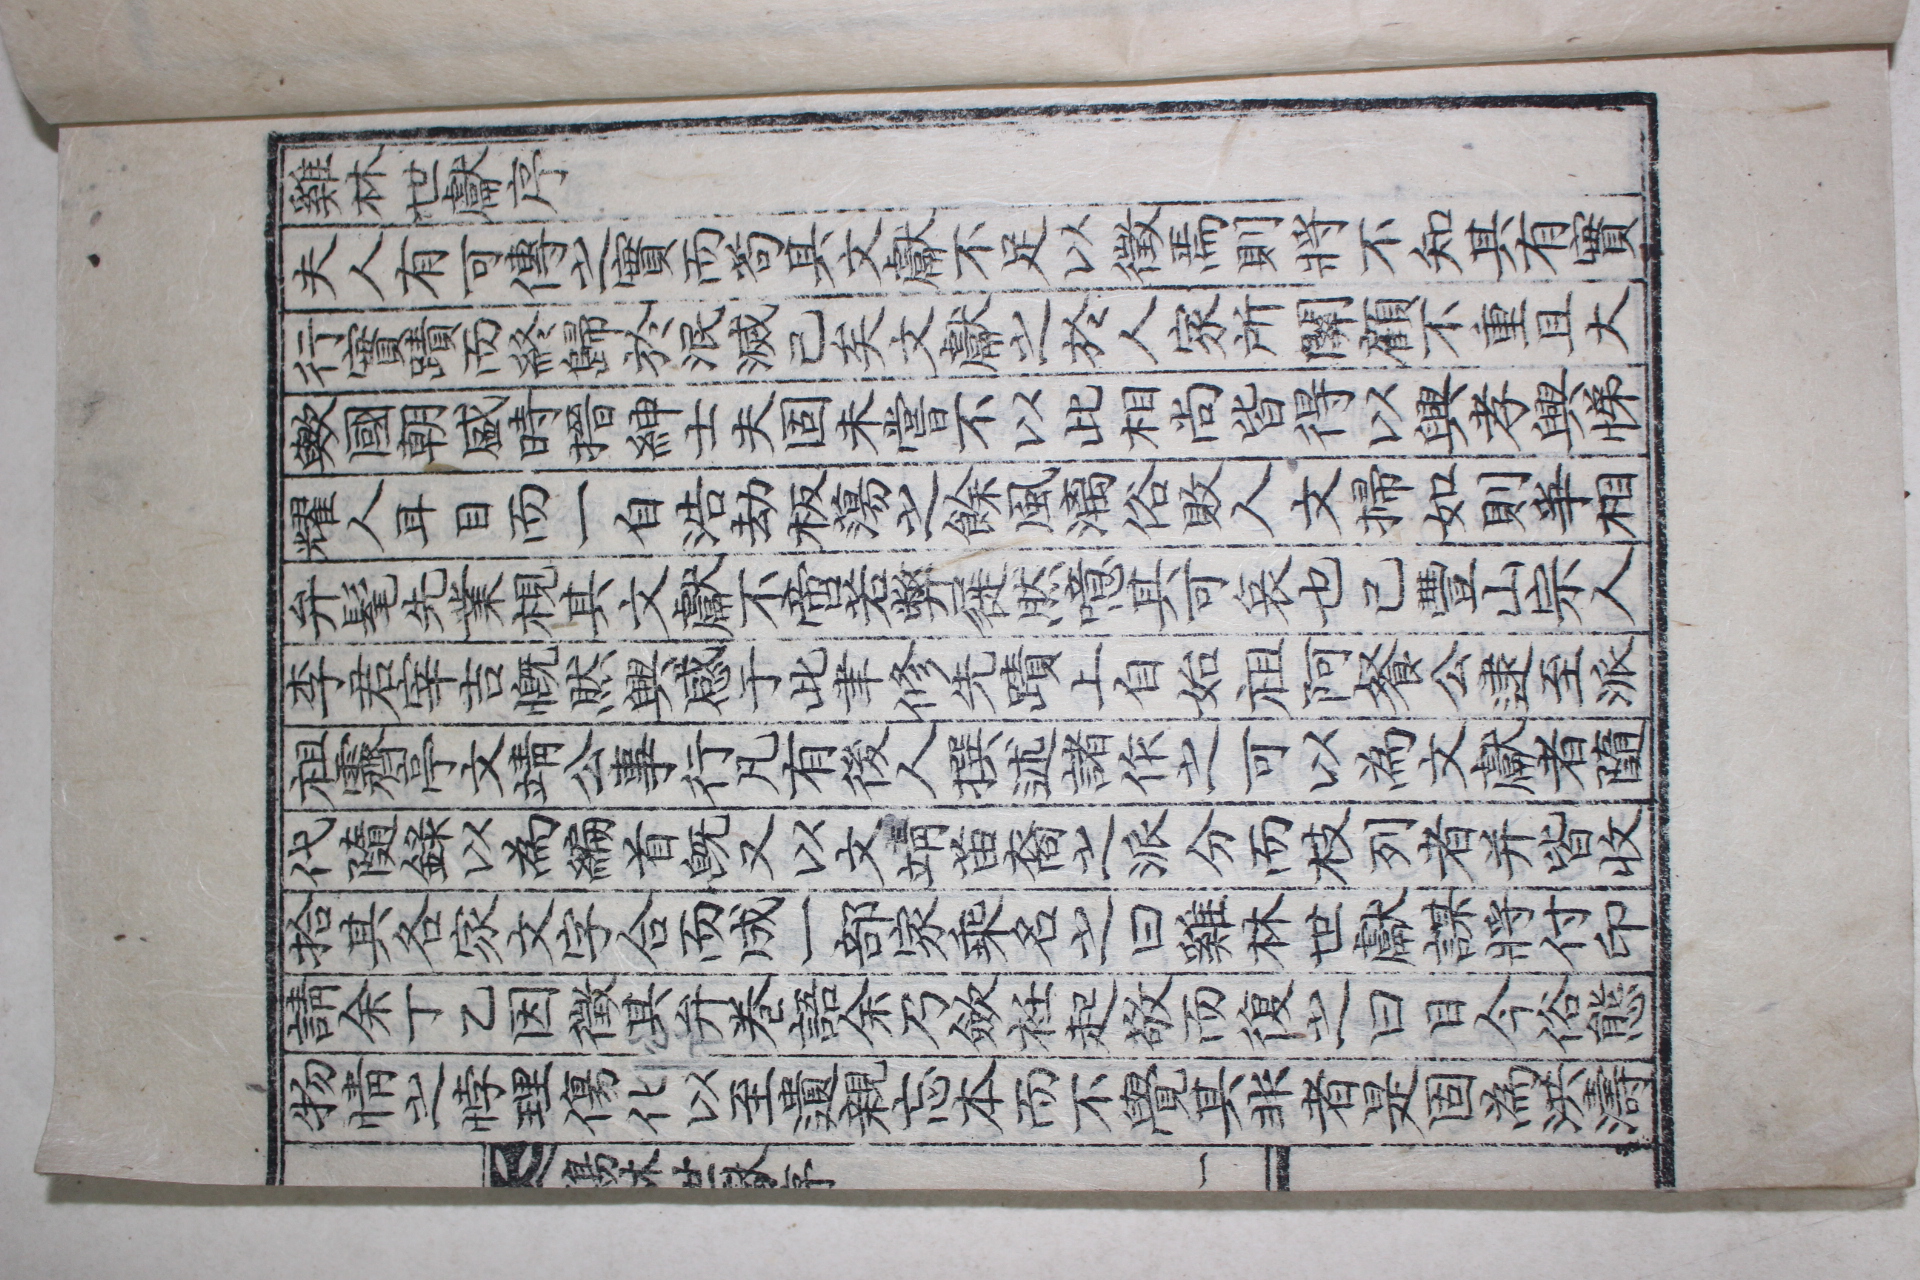 雞林世獻序
夫人有可傳之實而苟其文獻不足以徵焉則將不知其有實
行實蹟而終歸於泯滅已矣文獻之於人家所關顧不重且大
歟國朝盛時搢紳士夫固未嘗不以此相尚皆得以興孝興悌
耀人耳目而一自浩劫板蕩之餘風漓俗敗人文掃如則爭相
弁髦先業視其文獻不啻若弊屣然噫其可哀也已豐山宗人
李君宰吉慨然興感于此聿修先蹟上自始祖阿餐公逮至派
祖霽亭文靖公事行凡有後人撰述諸作之可以為文獻者隨
代隨錄以為編首既又以文靖苗裔之派分而枝列者并皆收
拾其各家文字合而成一部家乘名之曰雞林世獻謀將付印
請余丁乙因徵其弁卷語余乃斂衽起敬而復之曰目今俗態
物情之悖理傷化以至遺親忘本而不覺其非者是固為洪濤
林世獻序
一